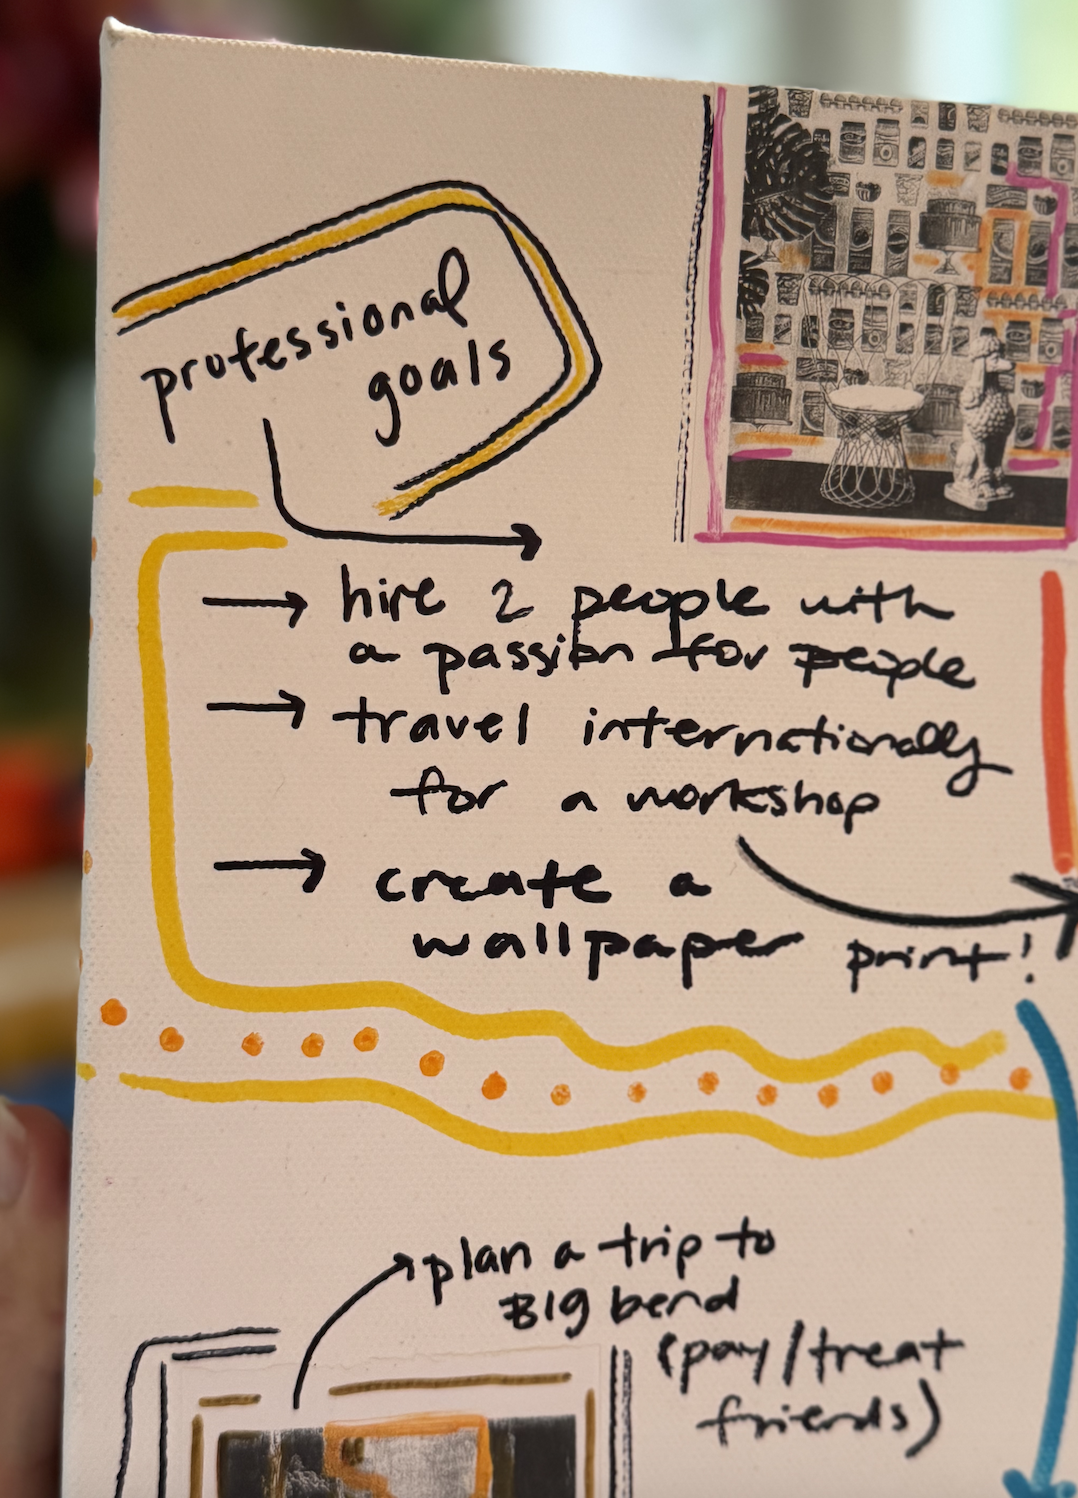 professional
goals
hire 2 people with
a passion for people
travel internationally
for a workshop
create a
wallpaper print!
plan a trip to
BIg bend
(pay/treat
friends)